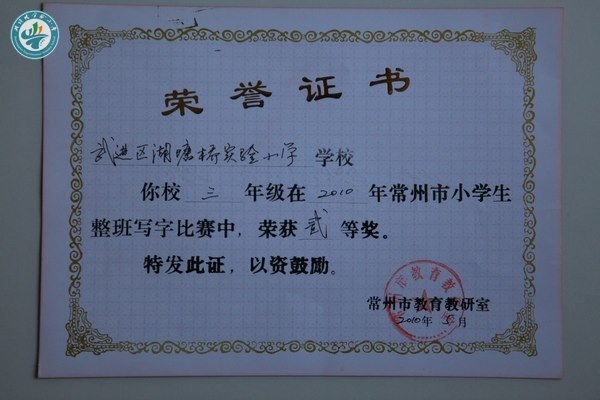 荣誉证书
武进区湖塘桥实验小学 学校
你校 三 年级在 2010 年常州市小学生
整班写字比赛中，荣获 贰 等奖。
特发此证，以资鼓励。
常州市教育教研室
2010年5月